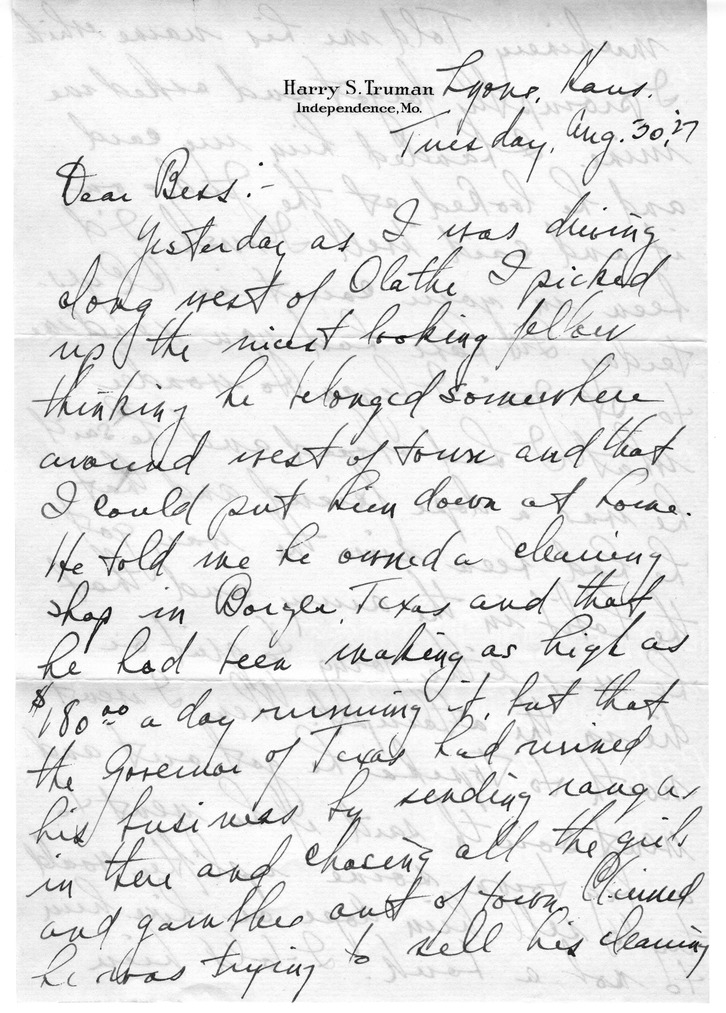 Harry S. Truman
Independence, Mo.
Lyons, Kans.
Tuesday, Aug. 30, 27
Dear Bess:-
Yesterday as I was driving
along west of Olathe I picked
up the nicest looking fellow
thinking he belonged somewhere
around west of town and that
I could put him down at home.
He told me he owned a cleaning
shop in Borger, Texas and that
he had been making as high as
$180.00 a day running it, but that
the Governor of Texas had ruined
his business by sending rangers
in there and chasing all the girls
and gamblers out of town. Claimed
he was trying to sell his cleaning